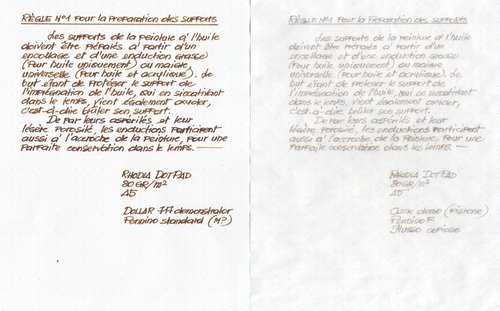 RÈGLE N°1 Pour la Préparation des supports
Les supports de la Peinture à l'huile
doivent être Préparés à Partir d'un
encollage et d'une enduction grasse
(Pour huile uniquement) ou maigre,
universelle (Pour huile et acrylique). Le
but étant de Protéger le support de
l'imprégnation de l'huile, qui en siccativant
dans le temps, vient également oxyder,
c'est-à-dire brûler son support.
De Par leurs aspérités et leur
légère Porosité, les enductions Participent
aussi à l'accroche de la Peinture, Pour une
Parfaite conservation dans le temps.
RHODIA DOTPAD
80 GR/m²
A5
DOLLAR 717i demonstrator
Pennino standard (M?)
RÈGLE N°1 Pour la Préparation des supports
Les supports de la Peinture à l'huile
doivent être Préparés à Partir d'un
encollage et d'une enduction grasse
(Pour huile uniquement) ou maigre,
universelle (Pour huile et acrylique). Le
but étant de Protéger le support de
l'imprégnation de l'huile, qui en siccativant
dans le temps, vient également oxyder,
c'est-à-dire brûler son support.
De Par leurs aspérités et leur
légère Porosité, les enductions Participent
aussi à l'accroche de la Peinture, Pour une
Parfaite conservation dans le temps.
RHODIA DOTPAD
80 GR/m²
A5
CLICK demo (Pistone)
Pennino F
Flusso